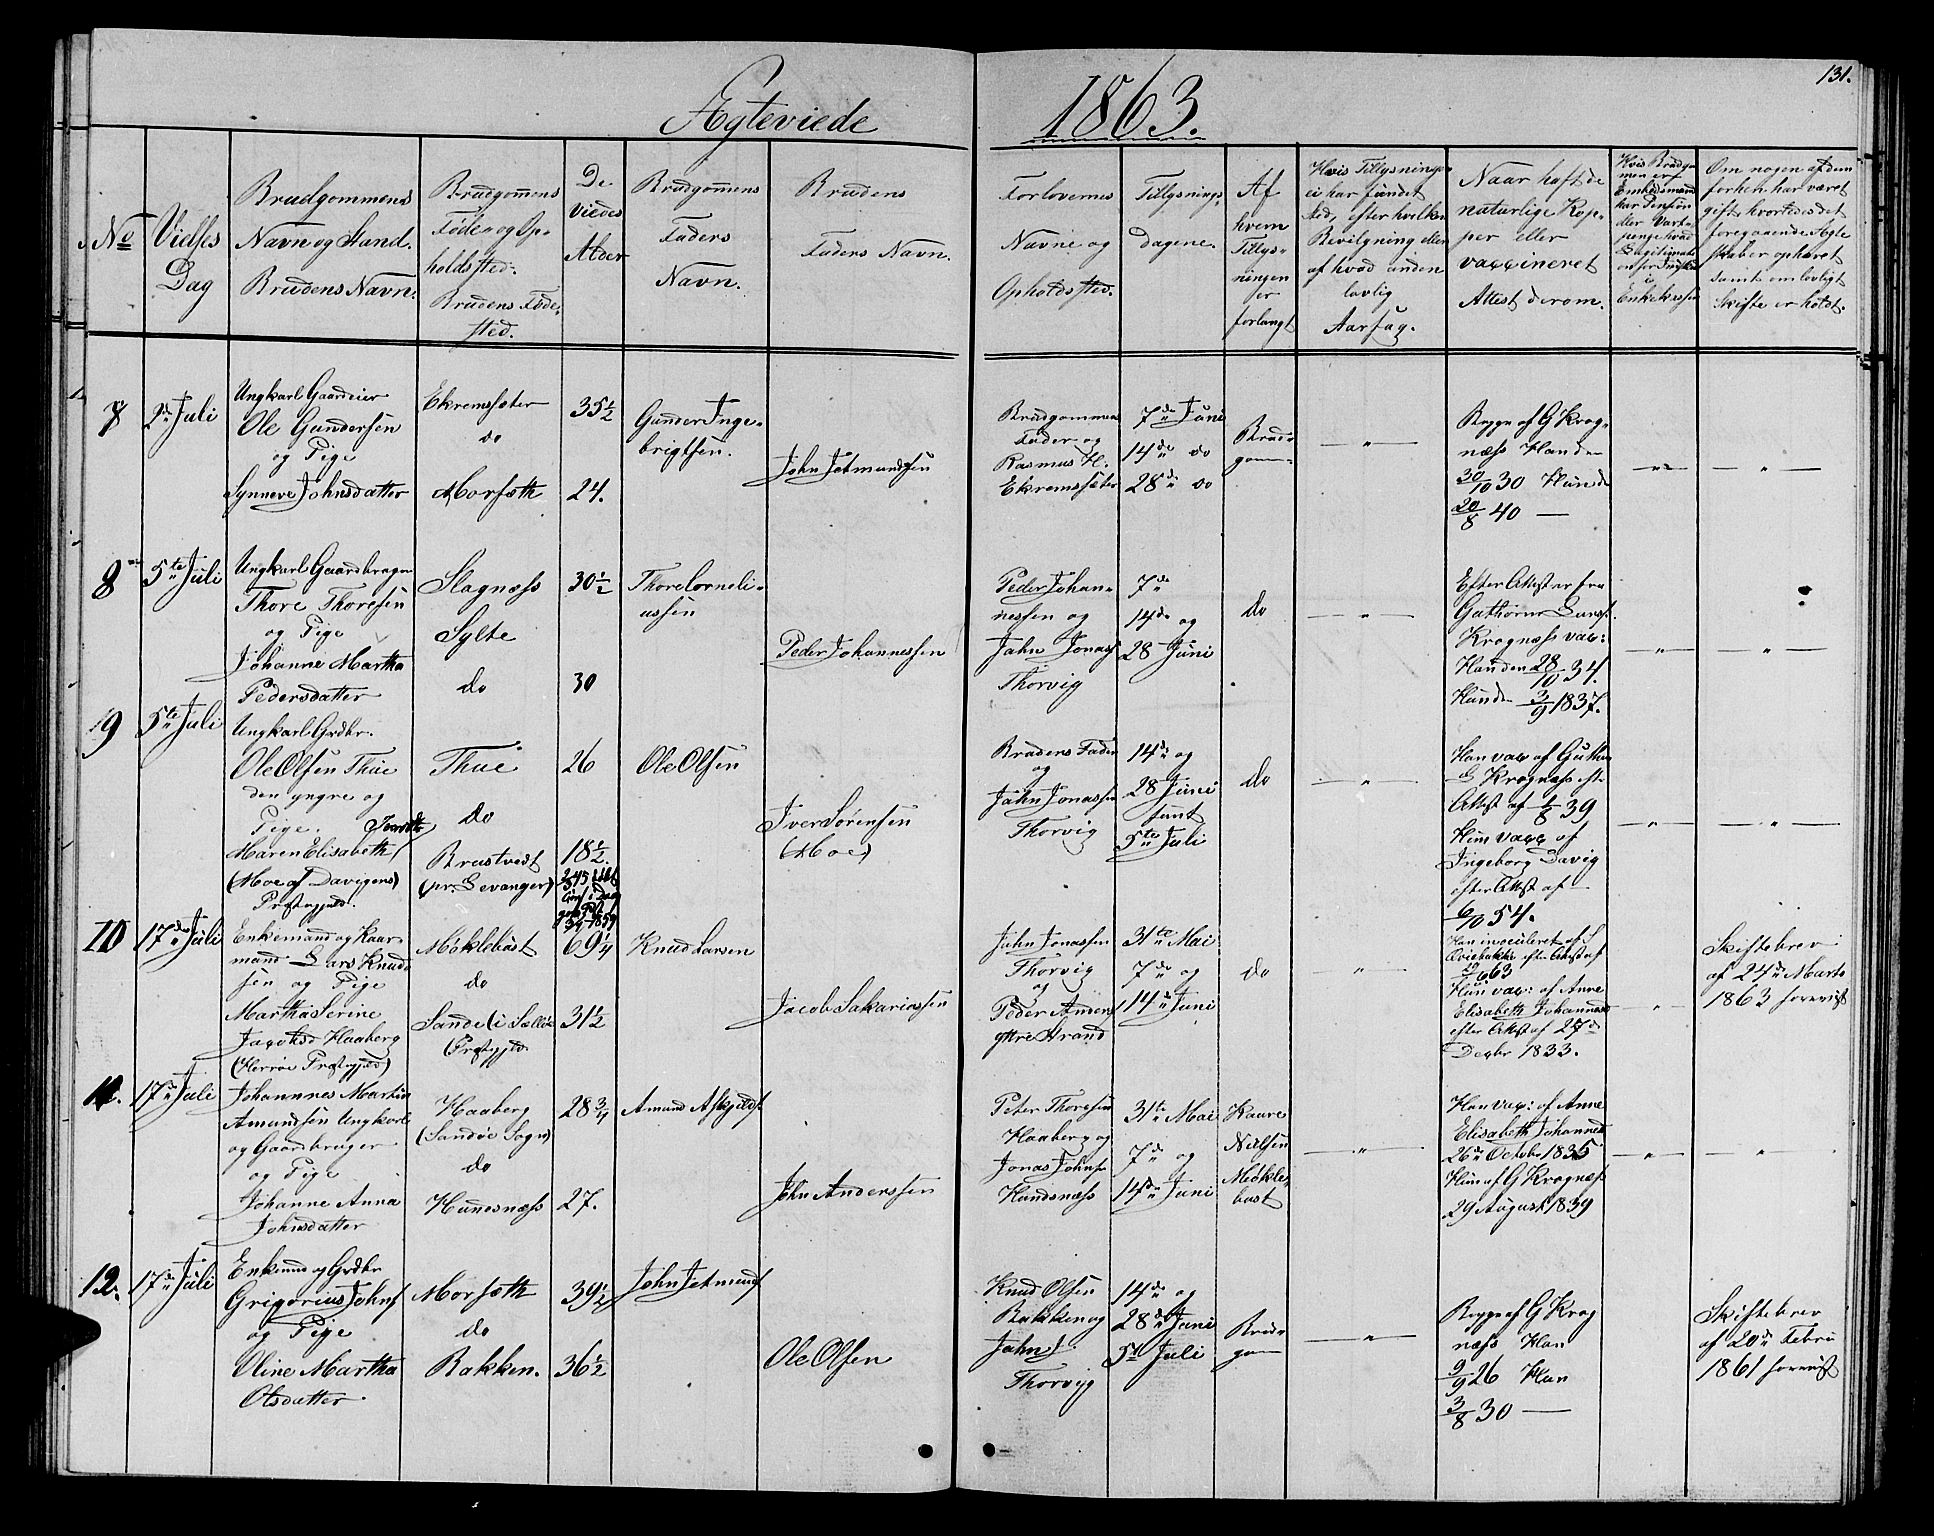 Ægteviede 1863.
131.
No
Vielses
Dag
Brudgommens
Navn og Stand.
Brudens Navn.
Brudgomens
Føde- og Op-
holdssted.
Brudens Føde-
sted.
De
Viedes
Alder
Brudgomens
Faders
Navn.
Brudens
Faders Navn.
Forlovernes
Navne og
Opholdssted.
Tillysnings-
dagene.
Af
hvem
Tillys-
ningen
er
forlangt
Hvis Tillysninge
ei har fundet
sted, efter hvilken
Bevilgning eller
af hvad anden
lovlig
Aarsag.
Naar haft de
naturlige Kop-
per eller
vaccineret
Attest derom.
Hvis Brudgo-
men er
Enkemand
har Pension
i
Enkekassen
Om nogen af dem
forhen har været
gift, hvorledes det
foregaaende Ægte
skab er ophøret
samt om lovligt
Skifte er holdt.
7
2de Juli
Ungkarl Gaardeier
Ole Gundersen
og Pige
Synneve Johnsdatter
Ekremssæter
do
Morsæth
35½
24.
Gunder Inge-
brigtsen.
John Jetmundsen
Brudgommens
Fader og
Rasmus H.
Ekremssæter
7de Juni
14de do
28de do
Brud-
gom-
Begge af G Krog-
næss Han den
30/10 30 Hun d
20/8 40 —
8
5te Juli
Ungkarl Gaardbruger
Thore Thoresen
og Pige
Johanne Martha
Pedersdatter
Slagnæss
Sylte
do
30½
30
Thore Corneli-
ussen
Peder Johannessen
Peder Johan-
nessen og
Jahn Jonass
Thorvig
7de
14de og
28 Juni
do
Efter Attester fra
Krognæss vac:
Han den 28/10 34.
Hun den 3/9 1837.
9
5te Juli
Ungkarl Grdbr.
Ole Olsen Thue
den yngre og
Pige.
Maren Elisabeth
(Moe af Davigens)
Præstegjeld.
Thue
do
Brustvedt
(pr. Levanger)
26
18½.
Ole Olsen
Iver Sørensen
(Moe)
Brudens Fader
og
Jahn Jonassen
Thorvig
14de og
28 Juni
samt
5te Juli
do
Han vac af
G Krognæss eft
Attest af 1/8 39
Hun vacc af
Ingeborg Davig
efter Attest af
6/10 54.
10
17de Juli
Enkemand og Kaar-
mand Lars Knud
sen og Pige
Martha Serine
Jacobsd Haaberg
(Herrøe Præstegjeld)
Møklebost
do
Sande (i Sælløe
Prstgjeld.
69¼
31½
Knud Larsen
Jacob Sakariassen
Jahn Jonassen
Thorvig
og
Peder Anders
Yttre Strand
31te Mai
7de og
14de Juni
do
Han inoculeret af S
efter Attest af
Hun vac: af Anne
Elisabeth Johannesd
efter Attest af 27de
Decbr 1833.
Skiftebrev
af 24de Marts
1863 forevist
11.
17de Juli
Johannes Martin
Amundsen Ungkarl
og Gaardbruger
og Pige
Johanne Anna
Johnsdatter
Haaberg
(Sandøe Sogn)
do
Hunesnæss
28¾
27.
Amund Askjelds.
John Anderssen
Peter Thoresen
Haaberg og
Jonas Johns
Hundsnæss
31te Mai
7de og
14de Juni
Kaare
Nielsen
Møkle-
bust
Han vac: af Anne
Elisabeth Johannesd
26de October 1835
Hun af G Krognæss
29 August 1839
12.
17de Juli
Enkemd og Grdbr
Grigorius Johns
og Pige
Oline Martha
Olsdatter
Morsæth
do
Bakken.
39½
36½
John Jetmunds
Ole Olsen
Knud Olsen
Bakken og
Jahn J.
Thorvig
14de og
28de Juni
5te Juli
Brud-
gom
Begge af G Krog
næss Han
9/9 26 Hun
3/8 30 —
Skiftebrev
af 20de Febru
1861 forevist